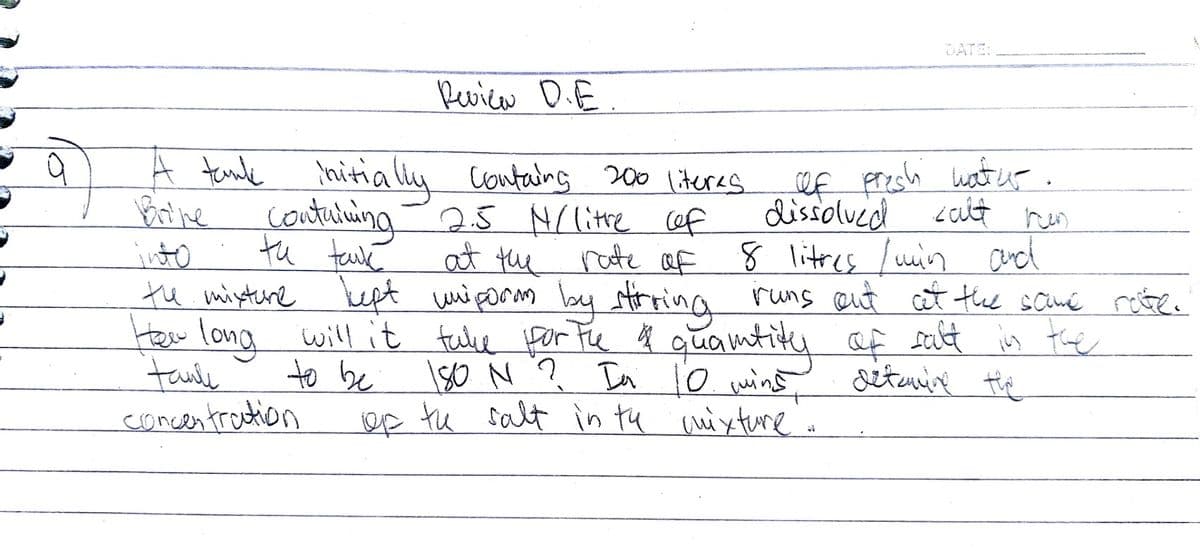 DATE:
Review D.E.
9) A tank initially contains 200 literes of fresh water.
Brine containing 2.5 N/litre of dissolved salt run
into the tank at the rate of 8 litres /min and
the mixture kept uniform by stirring runs out at the same rate.
How long will it take for the quamtity of salt in the
tank to be 180 N ? In 10 mins, determine the
concentration of the salt in the mixture.